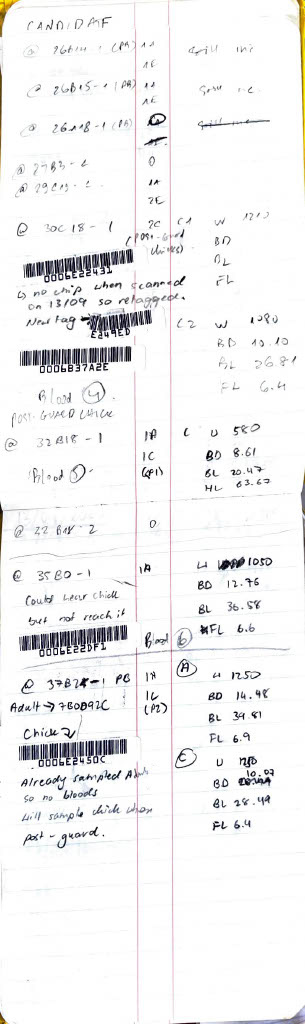 CANDIDATE
@ 26B14-1 (PB) 1A
1E
@ 26B15-1 (PB) 1A
1E
@ 26B18-1 (PB)
@ 27B3-2 0
@ 29C13-2 1A
2E
@ 30C18-1 2C C1 W 1210
(Post-guard chicks) BD
BL
FL
0006E22431
↳ no chip when scanned
on 13/09 so retagged.
New tag →
E249ED
0006B37A2E
C2 W 1080
BD 10.10
BL 26.81
FL 6.4
Blood 4
POST-GUARD CHICK
@ 32B18-1 1A C W 580
1C BD 8.61
(P1) BL 20.47
HL 63.67
Blood 5
@ 32B18-2 0
@ 35B0-1 1A W 1050
Could hear chick BD 12.76
but not reach it BL 36.58
FL 6.6
0006E22DF1
Blood 6
@ 37B2-1 PB 1A A W 1250
Adult → 7B0D92C 1C BD 14.48
(P2) BL 39.81
FL 6.9
Chick
0006E2450C
C W
BD 10.07
BL 28.49
FL 6.4
Already sampled Adult
so no bloods
Will sample chick when
post-guard.